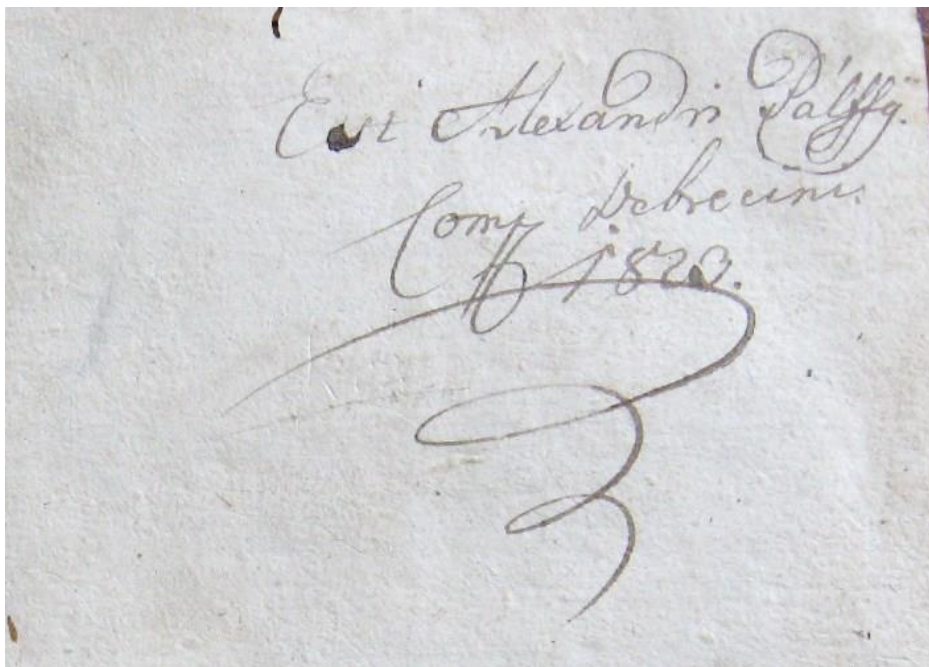 Est Alexandri Pálffÿ.
Comp Debrecini.
1823.